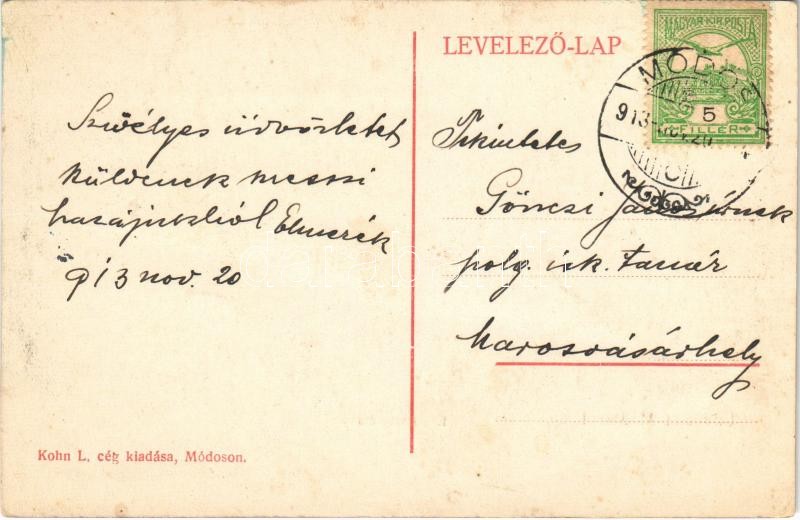 LEVELEZŐ-LAP
MAGYAR KIR. POSTA
5
FILLER
MÓDOS
913 NOV. 20
Szivélyes üdvözletet
küldenek messzi
hazájukból Elmerék
913 nov. 20
Tekintetes
Gönczi János úrnak
polg. isk. tanár
Marosvásárhely
Kohn L. cég kiadása, Módoson.